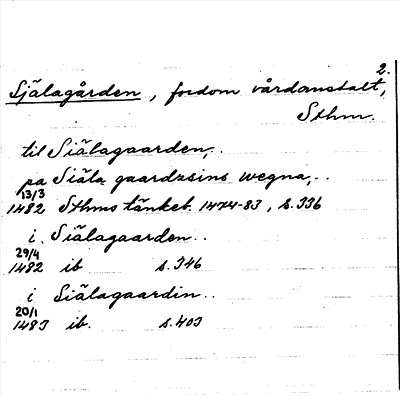 2.
Själagården, fordom vårdanstalt,
Sthm.
til Siälagaarden,.
pa Siäla gaardzsins wegna,..
13/3
1482 Sthms tänkeb. 1474-83, s. 336
i Siälagaarden..
29/4
1482 ib s. 346
i Siälagaardin..
20/1
1483 ib. s. 403